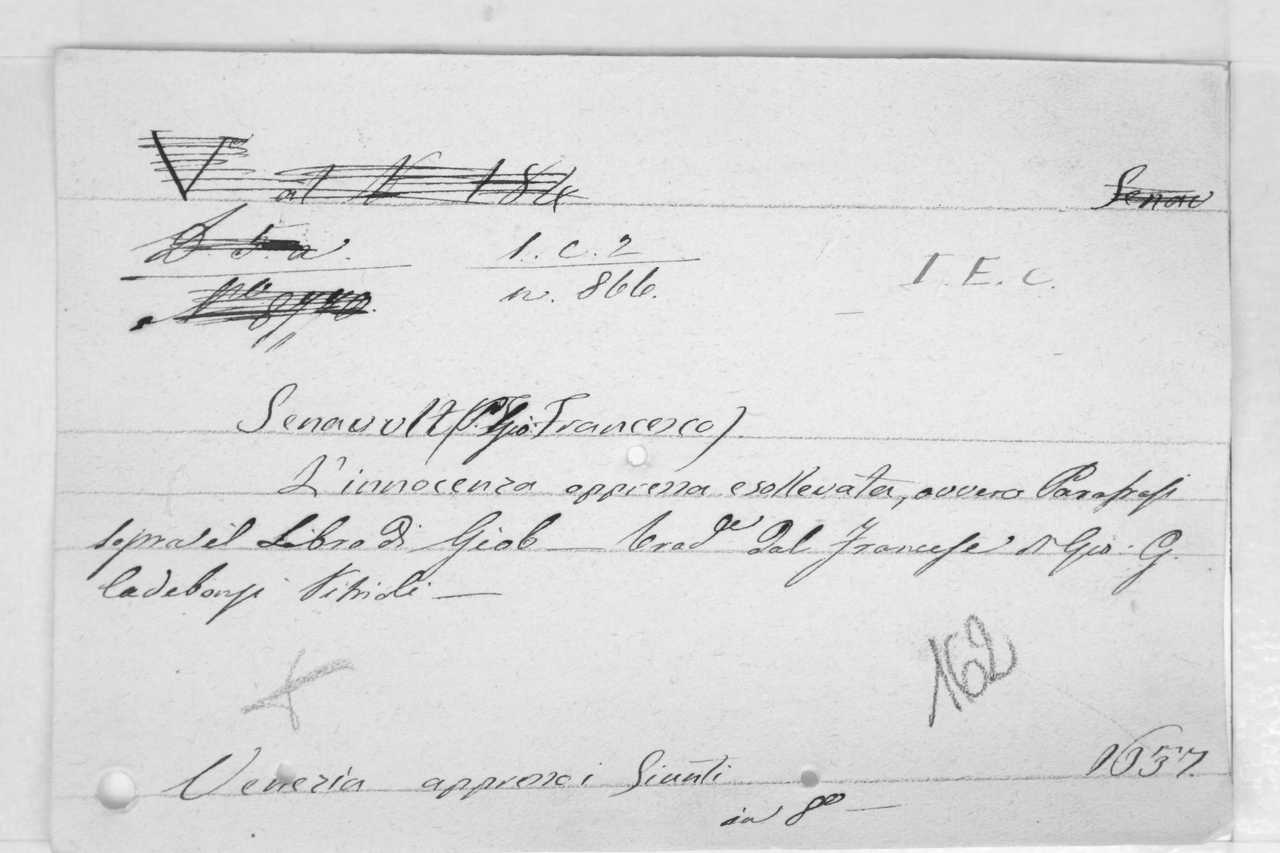 V al N 184
Senau
D. 5. a.
1. c. 2
I. E. C.
n. 866.
Senault (P. Gio: Francesco).
L'innocenza oppressa e sollevata, ovvero Parafrasi
sopra il Libro di Giob — trad.e dal Francese di Gio. G.
Ladebonsi Vitrioli —
162
Venezia appresso i Giunti
1657.
in 8º —